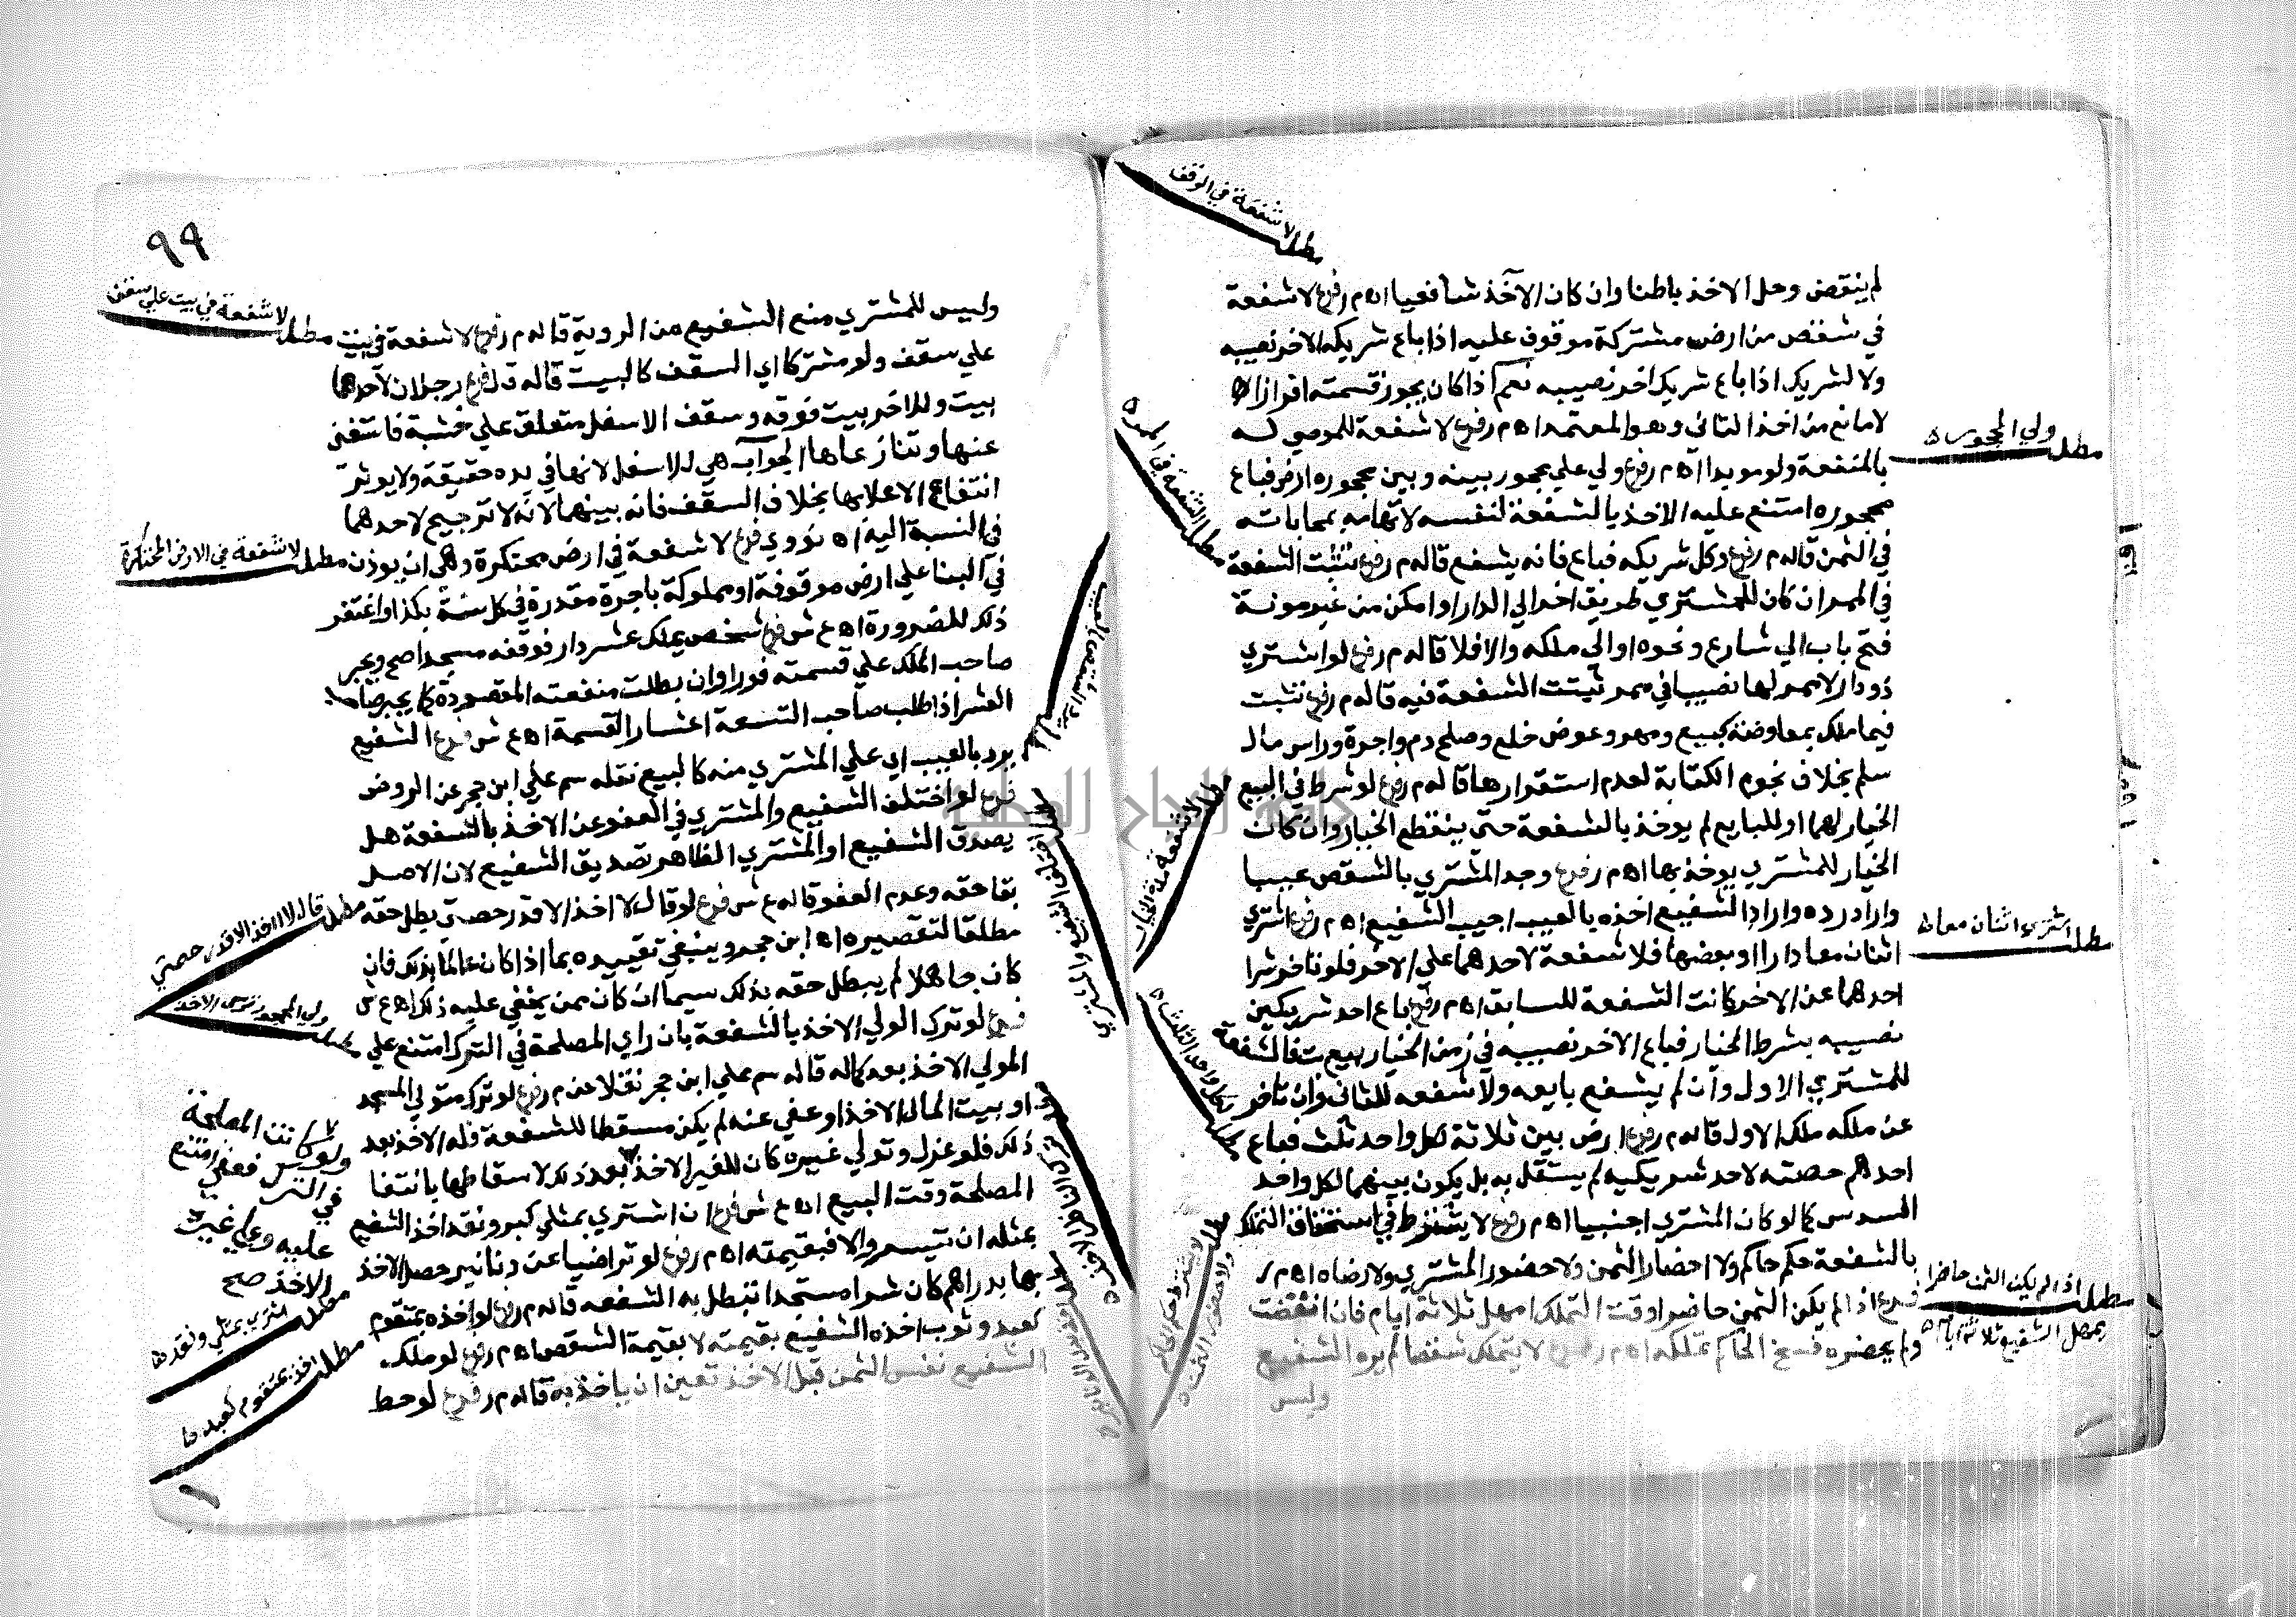 لا شفعة في الوقف
لم ينقض وحل الاخذ باطنا وان كان الآخذ شافعيا اهـ م ر فرع لا شفعة
في شقص من ارض مشتركة موقوف عليه اذا باع شريكه الاخر نصيبه
ولا لشريك اذا باع شريك اخر نصيبه نعم اذا كان يجوز قسمته افرازا
لا مانع من اخذ الثاني وهو المعتمد اهـ م ر فرع لا شفعة للموصي له
بالمنفعة ولو موبدا اهـ م ر فرع ولي علي محجور بينه وبين محجوره ارض فباع
محجوره امتنع عليه الاخذ بالشفعة لنفسه لاتهامه بمحاباته
في الثمن قاله م ر فرع وكل شريكه فباع فانه يشفع قاله م ر فرع تثبت الشفعة
في الممر ان كان للمشتري طريق اخر الي الدار او امكن من غير مونة
فتح باب الي شارع ونحوه او الي ملكه والا فلا قاله م ر فرع لو اشتري
ذو دار لا ممر لها نصيبا في ممر ثبتت الشفعة فيه قاله م ر فرع تثبت
فيما ملك بمعاوضة كبيع ومهر وعوض خلع وصلح دم واجرة وراس مال
سلم بخلاف نجوم الكتابة لعدم استقرارها قاله م ر فرع لو شرط في البيع
الخيار لهما او للبايع لم يوخذ بالشفعة حتي ينقطع الخيار وان كان
الخيار للمشتري يوخذ بها اهـ م ر فرع وجد المشتري بالشقص عيبا
واراد رده واراد الشفيع اخذه بالعيب اجيب الشفيع اهـ م ر فرع اشتري
اثنان معا دارا او بعضها فلا شفعة لاحدهما علي الاخر فلو تاخر شرا
احدهما عن الاخر كانت الشفعة للسابق اهـ م ر فرع باع احد شريكين
نصيبه بشرط الخيار فباع الاخر نصيبه في زمن الخيار بيع بت فالشفعة
للمشتري الاول وان لم يشفع بايعه ولا شفعه للثاني وان تاخر
عن ملكه ملك الاول قاله م ر فرع ارض بين ثلاثة لكل واحد ثلث فباع
احدهم حصته لاحد شريكيه لم يستقل به بل يكون بينهما لكل واحد
السدس كما لو كان المشتري اجنبيا اهـ م ر فرع لا يشترط في استحقاق التملك
بالشفعة حكم حاكم ولا احضار الثمن ولا حضور المشتري ولا رضاه اهـ م ر
فرع اذا لم يكن الثمن حاضرا وقت التملك امهل ثلاثة ايام فان انقضت
ولم يحضره فسخ الحاكم تملكه اهـ م ر فرع لا يتملك شقصا لم يره الشفيع
وليس
مطلب ولي المحجور
مطلب الشفعة في الممر
مطلب لا شفعة مدة الخيار
مطلب اشتري اثنان معا
مطلب لكل واحد الثلث
مطلب لا يشترط حكم الحاكم
ولا حضور الثمن
مطلب اذا لم يكن الثمن حاضرا
يمهل الشفيع ثلاثة ايام
٩٩
وليس للمشتري منع الشفيع من الروية قاله م ر فرع لا شفعة في بيت
علي سقف ولو مشتركا اي السقف كالبيت قاله ق ل فرع رجلان لاحدهما
بيت وللاخر بيت فوقه وسقف الاسفل متعلق علي خشبة فاستغني
عنها وتنازعاها الجواب هي للاسفل لانها في يده حقيقة ولا يوثر
انتفاع الاعلا بها بخلاف السقف فانه بينهما لانه لا ترجيح لاحدهما
في النسبة اليه اهـ نووي فرع لا شفعة في ارض محتكرة وهي ان يوذن
في البنا علي ارض موقوفة او مملوكة باجرة مقدرة في كل سنة بكذا واغتفر
ذلك للضرورة اهـ ع ش فرع شخص يملك عشر دار فوقفه مسجدا صح ويجبر
صاحب الملك علي قسمته فورا وان بطلت منفعته المقصودة كما يجبر صاحب
العشر اذا طلب صاحب التسعة اعشار القسمة اهـ ع ش فرع الشفيع
يرد بالعيب اي علي المشتري منه كالبيع نقله سم علي ابن حجر عن الروض
فرع لو اختلف الشفيع والمشتري في العفو عن الاخذ بالشفعة هل
يصدق الشفيع او المشتري الظاهر تصديق الشفيع لان الاصل
بقا حقه وعدم العفو قاله ع ش فرع لو قال لا اخذ الا قدر حصتي بطل حقه
مطلقا لتقصيره اهـ ابن حجر وينبغي تقييده بما اذا كان عالما بذلك فان
كان جاهلا لم يبطل حقه بذلك سيما ان كان ممن يخفي عليه ذلك اهـ ع ش
فرع لو ترك الولي الاخذ بالشفعة بان راي المصلحة في الترك امتنع علي
المولي الاخذ بعد كماله قاله سم علي ابن حجر نقلا عن م ر فرع لو ترك متولي المسجد
او بيت المال الاخذ او عفي عنه لم يكن مسقطا للشفعة فله الاخذ بعد
ذلك فلو عزل وتولي غيره كان للغير الاخذ بعد ذلك لاسقاطها بانتفا
المصلحة وقت البيع اهـ ع ش فرع ان اشتري بمثلي كبر ونقد اخذ الشفيع
بمثله ان تيسر والا فبقيمته اهـ م ر فرع لو تراضيا عن دنانير حصل الاخذ
بها بدراهم كان شرا مستجدا تبطل به الشفعه قاله م ر فرع لو اخذه بمتقوم
كعبد وثوب اخذه الشفيع بقيمته لا بقيمة الشقص اهـ م ر فرع لو ملك
الشفيع نفس الثمن قبل الاخذ تعين ان ياخذ به قاله م ر فرع لو حط
مطلب لا شفعة في بيت علي سقف
مطلب لا شفعة في الارض المحتكرة
مطلب قال لا اخذ الا قدر حصتي
مطلب ولي المحجور ترك الاخذ
ولو كانت المصلحة
في الترك فعفي امتنع
عليه وعلي غيره
الاخذ صح
مطلب اشتري بمثلي ونقد
مطلب اخذ بمتقوم كعبد